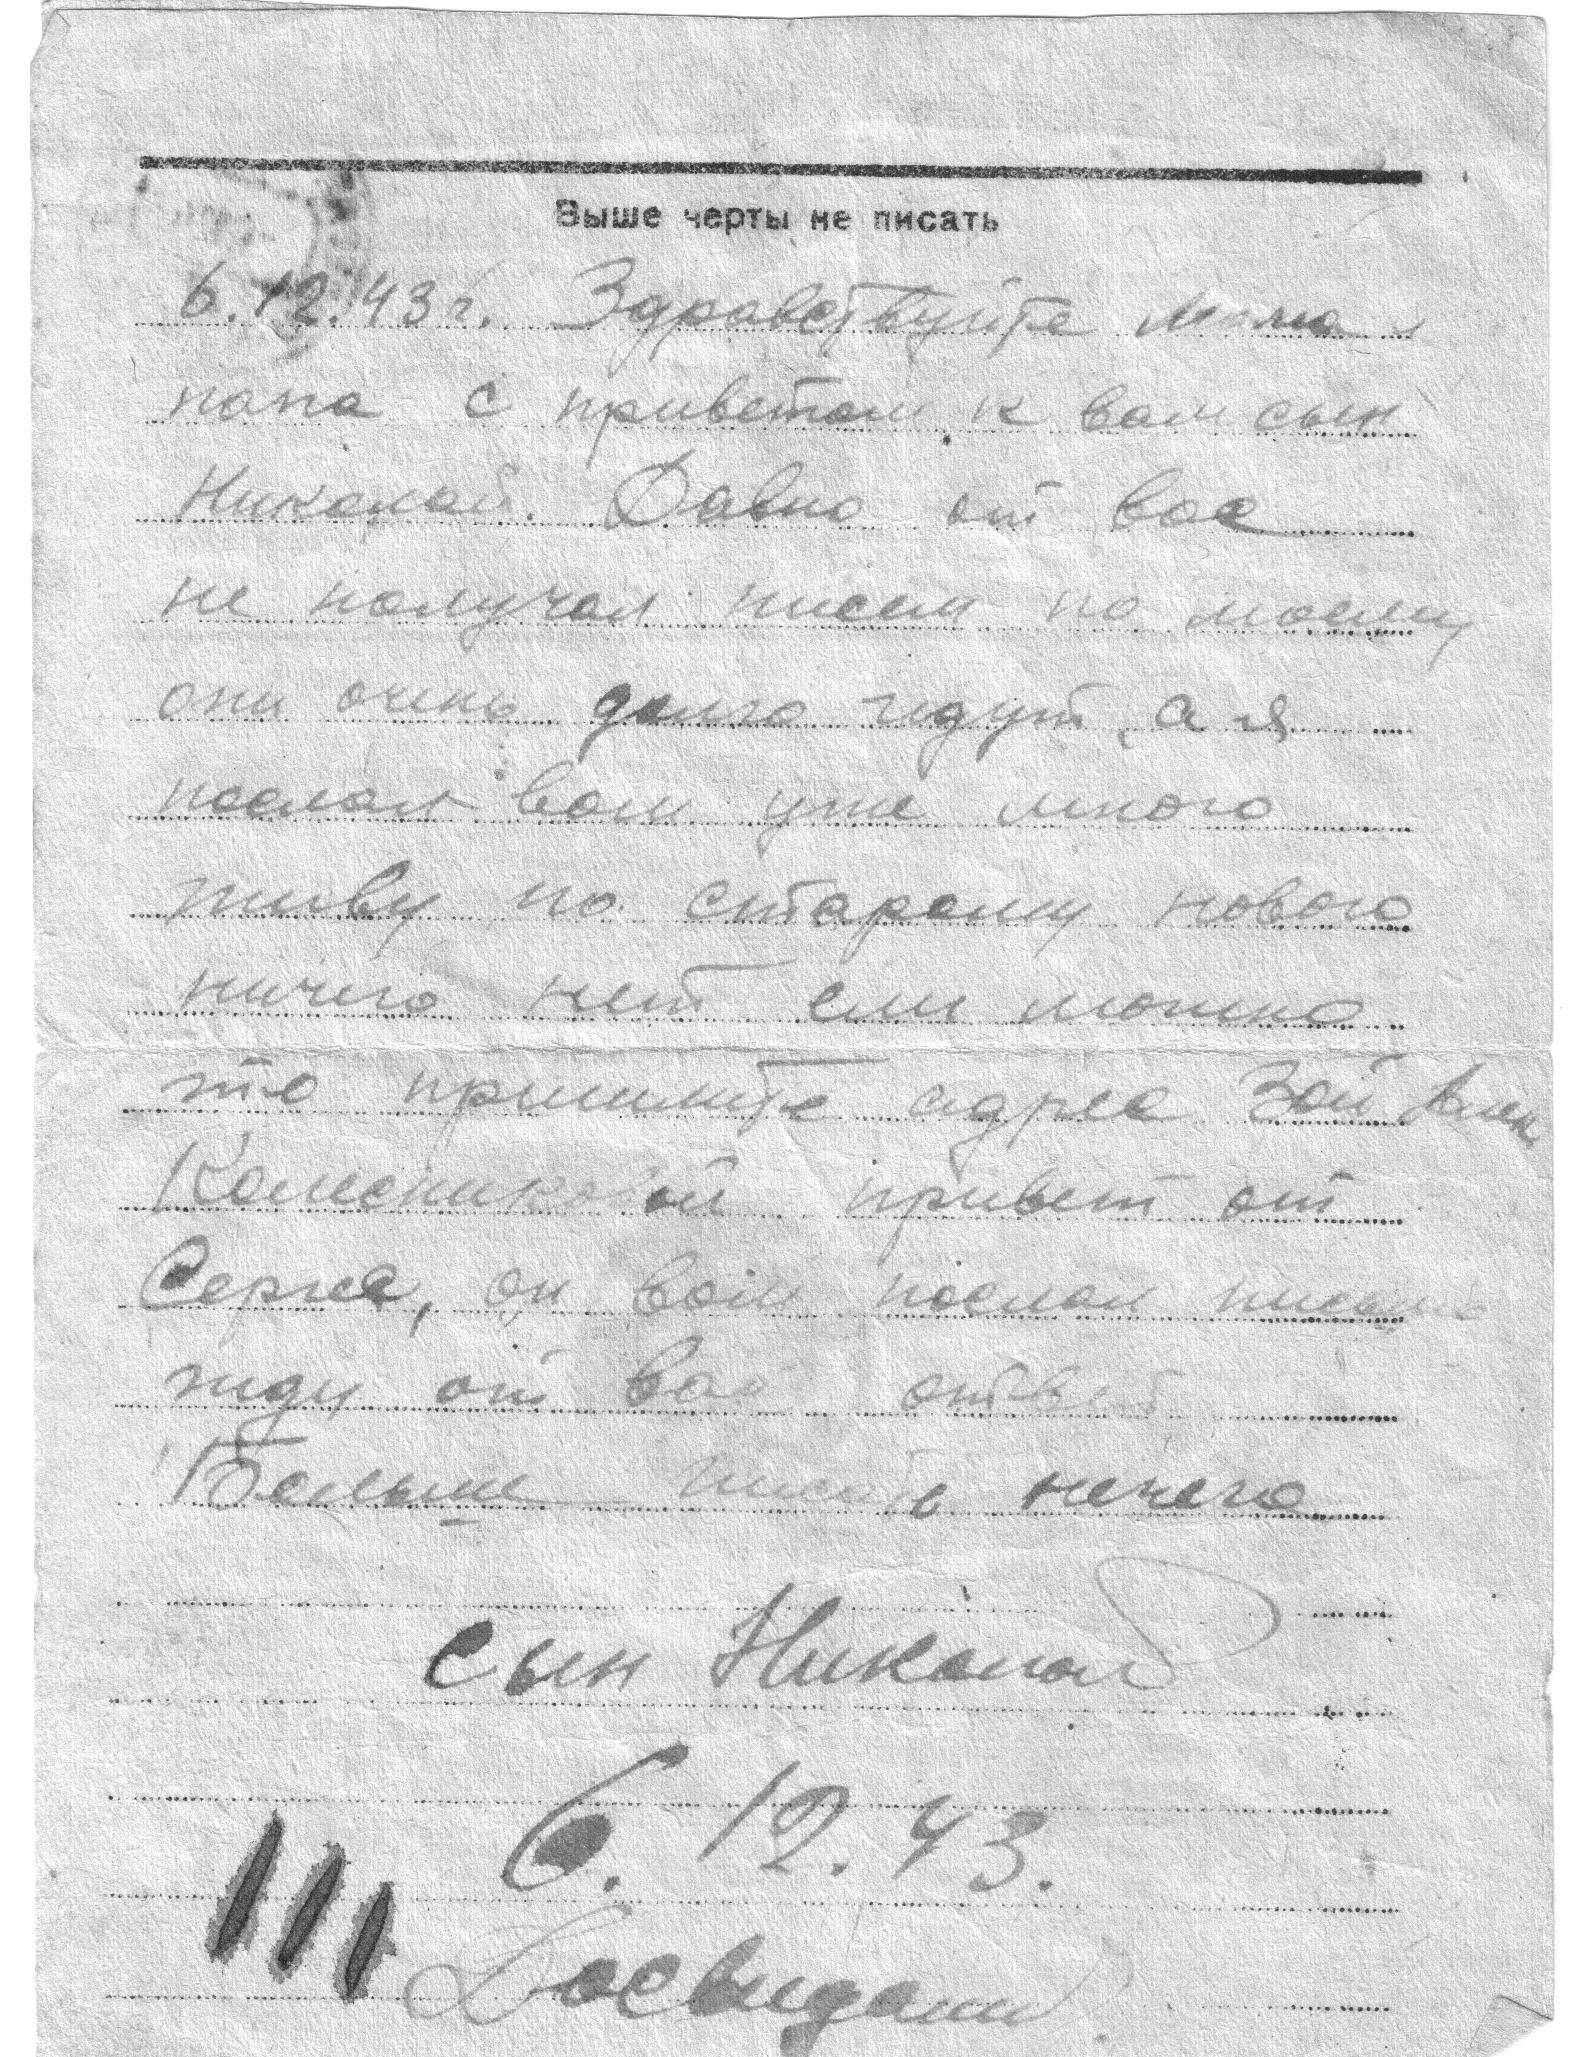 Выше черты не писать
6.12.43 г. Здравствуйте Мама и
папа с приветом к вам сын
Николай. Давно от вас
не получал писем по моему
они очень долго идут, а я
послал вам уже много
живу по старому нового
ничего нет если можно
то пришлите адрес Зои Алек.
Колесниковой привет от
Сергея, он вам послал письмо
жду от вас ответ
Больше писать нечего
сын Николай
6.12.43.
Досвидания.